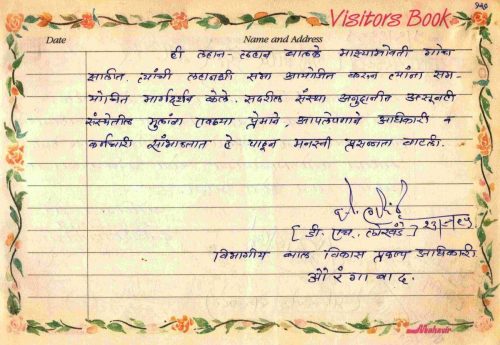 940
Visitors Book
Date Name and Address
ही लहान-लहान बालके माझ्याभोवती गोळा
झालीत. त्यांची लहानशी सभा आयोजित करून त्यांना सम-
योचित मार्गदर्शन केले. सदरील संस्था अनुदानीत असूनही
संस्थेतील मुलांना एवढ्या प्रेमाने, आपलेपणाने अधिकारी व
कर्मचारी सांभाळतात हे पाहून मनस्वी प्रसन्नता वाटली.
[ डी. एच. लोखंडे ]
विभागीय बाल विकास प्रकल्प अधिकारी
औरंगाबाद.
Mahavir